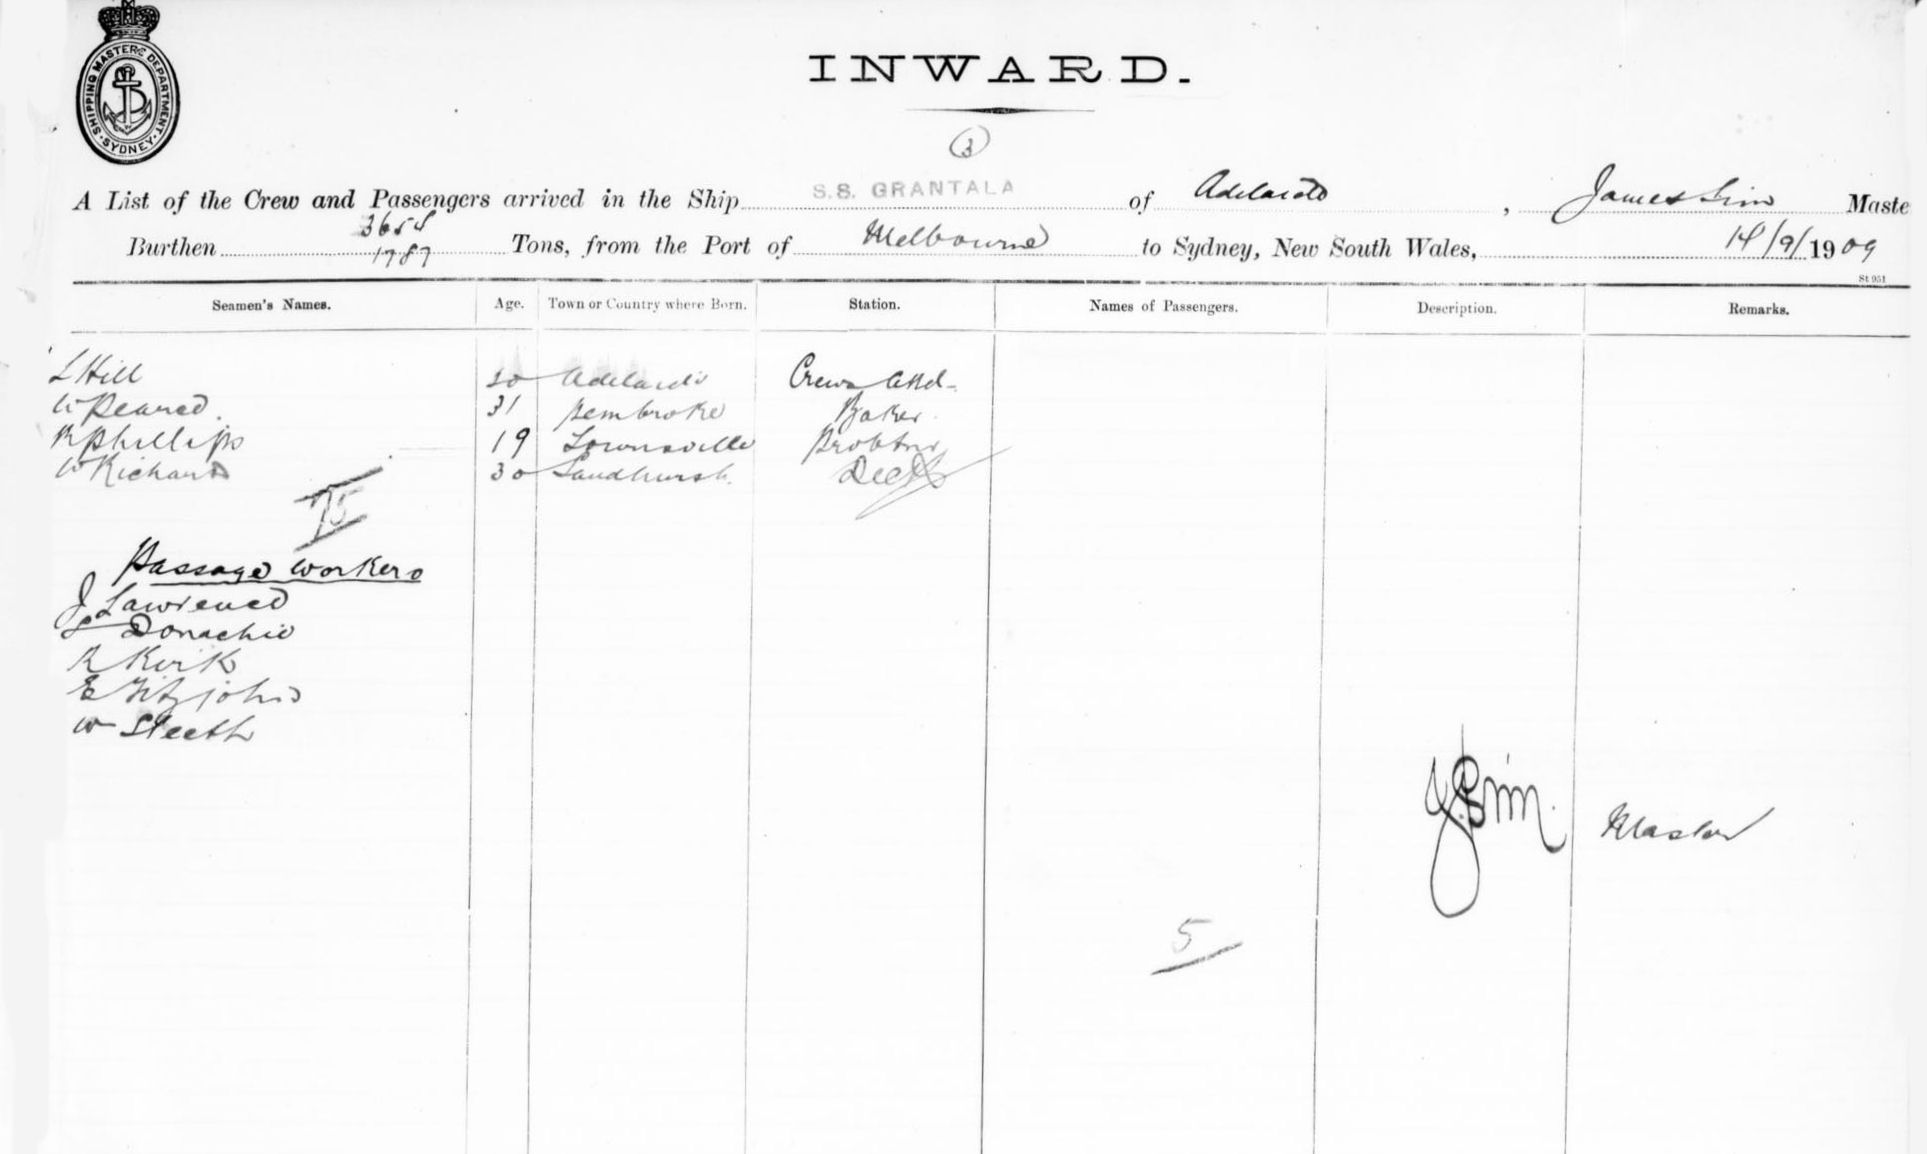 SHIPPING MASTERS DEPARTMENT · SYDNEY ·
INWARD.
3
A List of the Crew and Passengers arrived in the Ship S.S. GRANTALA of Adelaide, James Sim Maste
3654
Burthen 1787 Tons, from the Port of Melbourne to Sydney, New South Wales, 14/9/1909
St 951
Seamen's Names. Age. Town or Country where Born. Station. Names of Passengers. Description. Remarks.
L Hill Adelaide Crews Attd-
W Pearce. 31 Pembroke Baker.
R Phillips 19 Townsville
W Richard 30 Sandhurst.
75
Passage workers
J Lawrence
Donachie
R Kirk
E Fitzjohn
W Sleeth
J. Sim. Master
5